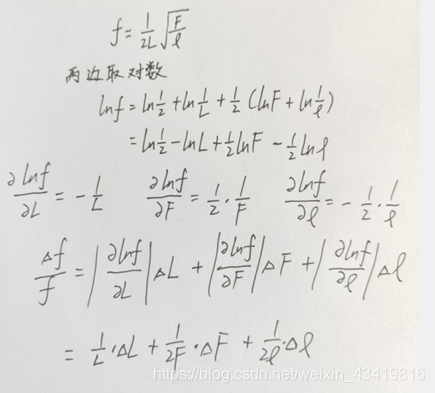 f = 1/2L √F/ℓ
两边取对数
lnf = ln1/2 + ln1/L + 1/2 (lnF + ln1/ℓ)
= ln1/2 - lnL + 1/2lnF - 1/2lnℓ
∂lnf/∂L = - 1/L ∂lnf/∂F = 1/2 · 1/F ∂lnf/∂ℓ = - 1/2 · 1/ℓ
△f/f = |∂lnf/∂L| △L + |∂lnf/∂F| △F + |∂lnf/∂ℓ| △ℓ
= 1/L · △L + 1/2F · △F + 1/2ℓ · △ℓ
https://blog.csdn.net/weixin_43419816